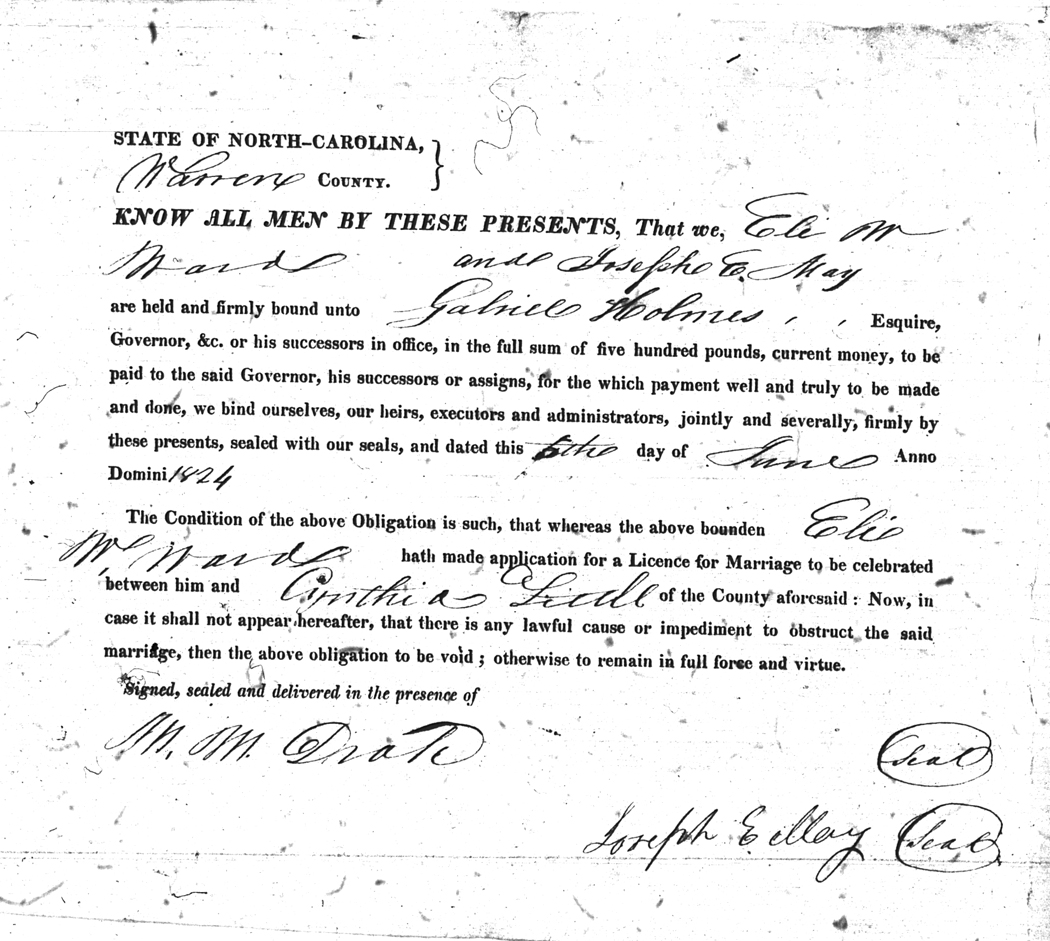 STATE OF NORTH-CAROLINA,
Warren COUNTY.
KNOW ALL MEN BY THESE PRESENTS, That we, Eli W
Ward and Joseph E. May
are held and firmly bound unto Gabriel Holmes , , Esquire,
Governor, &c. or his successors in office, in the full sum of five hundred pounds, current money, to be
paid to the said Governor, his successors or assigns, for the which payment well and truly to be made
and done, we bind ourselves, our heirs, executors and administrators, jointly and severally, firmly by
these presents, sealed with our seals, and dated this 5th day of June Anno
Domini 1824
The Condition of the above Obligation is such, that whereas the above bounden Eli
W. Ward hath made application for a Licence for Marriage to be celebrated
between him and Cynthia of the County aforesaid : Now, in
case it shall not appear hereafter, that there is any lawful cause or impediment to obstruct the said
marriage, then the above obligation to be void ; otherwise to remain in full force and virtue.
Signed, sealed and delivered in the presence of
M. M. Drake
(Seal)
Joseph E May (Seal)